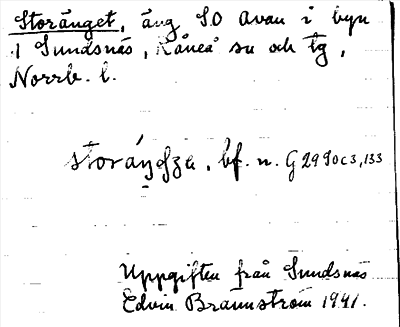 Storänget, äng SO Avan i byn
1 Sundsnäs, Råneå sn och tg,
Norrb. l.
bf. n. G 2990 c 3, 133
Uppgiften från Sundsnäs
Edvin Brännström 1941.